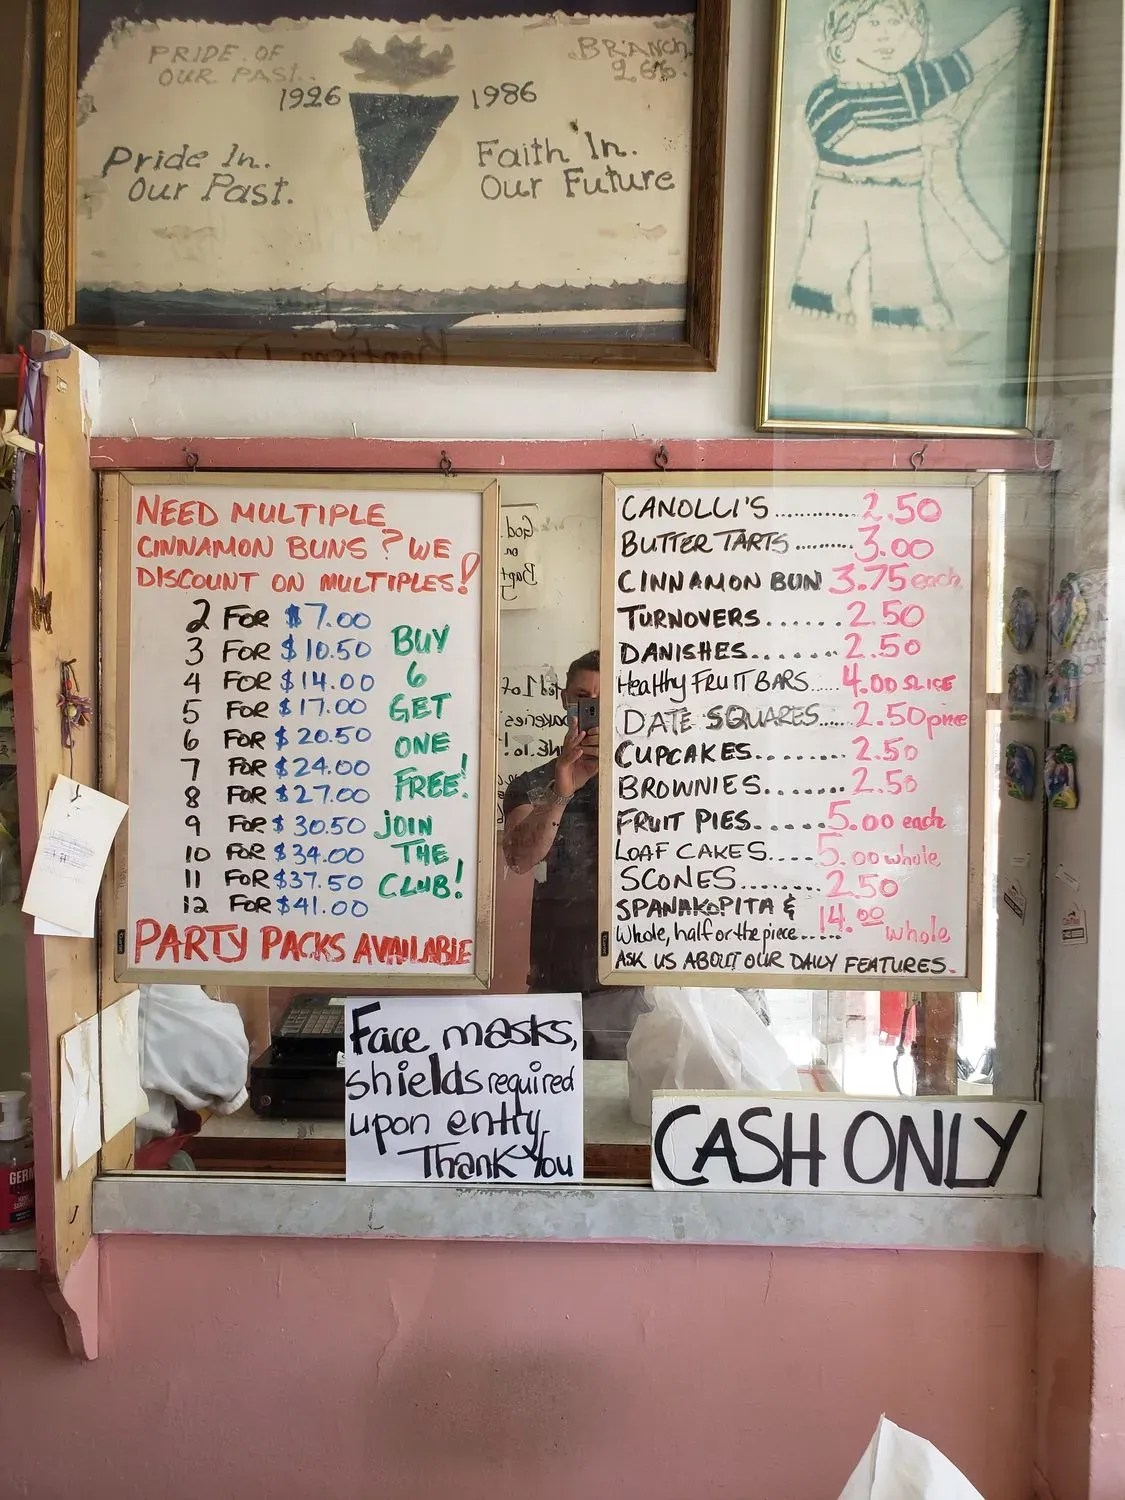 PRIDE OF
OUR PAST..
BRANCH
266.
1926
1986
Pride In.
Our Past.
Faith In.
Our Future
NEED MULTIPLE
CINNAMON BUNS? WE
DISCOUNT ON MULTIPLES!
2 FOR $7.00
3 FOR $10.50
4 FOR $14.00
5 FOR $17.00
6 FOR $20.50
7 FOR $24.00
8 FOR $27.00
9 FOR $30.50
10 FOR $34.00
11 FOR $37.50
12 FOR $41.00
BUY
6
GET
ONE
FREE!
JOIN
THE
CLUB!
PARTY PACKS AVAILABLE
God
on
Bapt
CANOLLI'S............2.50
BUTTER TARTS.........3.00
CINNAMON BUN 3.75 each
TURNOVERS......2.50
DANISHES.......2.50
Healthy FRUIT BARS.....4.00 SLICE
DATE SQUARES.....2.50 piece
CUPCAKES........2.50
BROWNIES.......2.50
FRUIT PIES......5.00 each
LOAF CAKES....5.00 whole
SCONES........2.50
SPANAKOPITA &
Whole, half or the piece......14.00 whole
ASK US ABOUT OUR DAILY FEATURES.
Face masks,
shields required
upon entry
Thank You
CASH ONLY
GERM